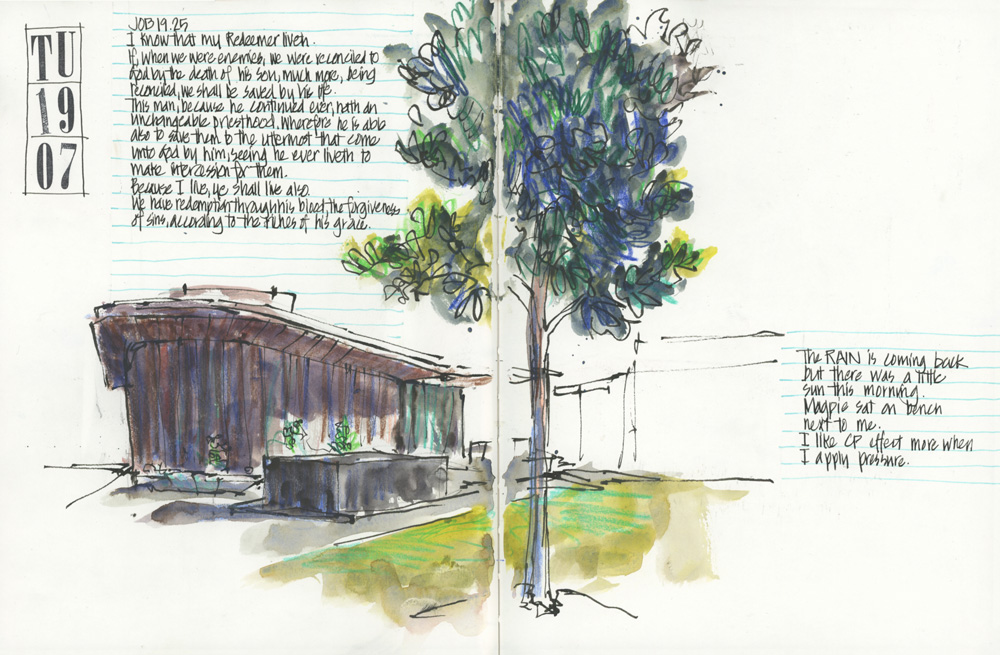 TU
19
07
JOB 19.25
I know that my Redeemer liveth.
If, when we were enemies, we were reconciled to
God by the death of his son, much more, being
reconciled, we shall be saved by his life.
This man, because he continued ever, hath an
unchangeable priesthood. Wherefore he is able
also to save them to the uttermost that come
unto God by him, seeing he ever liveth to
make intercession for them.
Because I live, ye shall live also.
We have redemption through his blood, the forgiveness
of sins, according to the riches of his grace.
The RAIN is coming back
but there was a little
sun this morning.
Magpie sat on bench
next to me.
I like CP effect more when
I apply pressure.